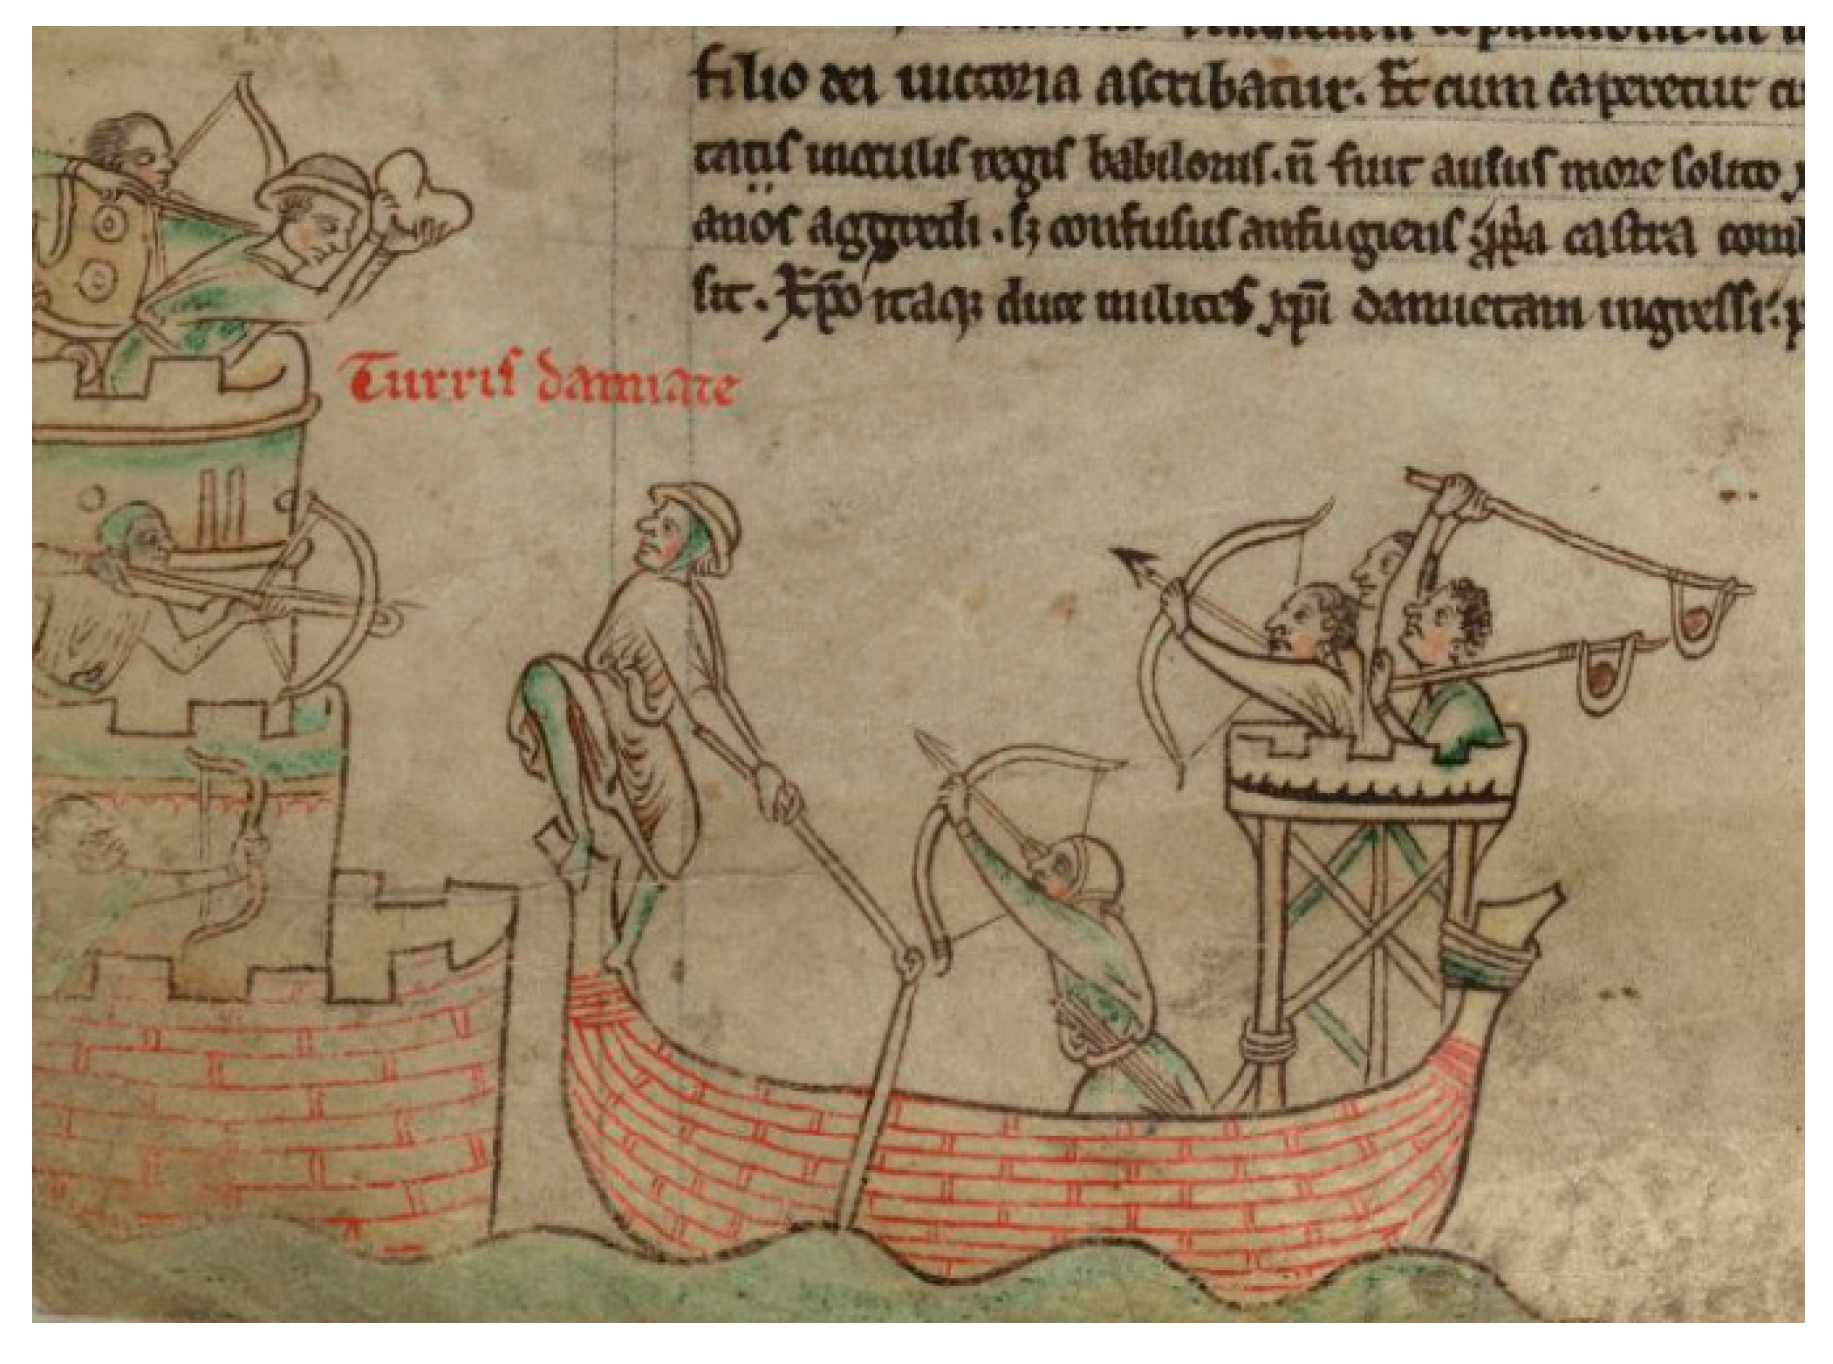 filio dei uictoria ascribatur. Et cum caperetur ci
tatis inoculis regis babilonis. n̄ fuit ausus more solito x
anos aggredi. sꝫ confusus aufugiens ꝓpͥa castra comb
sit. Xp̄o itaqꝫ duce milites xp̄i damietam ingressi. p
Turris damiate